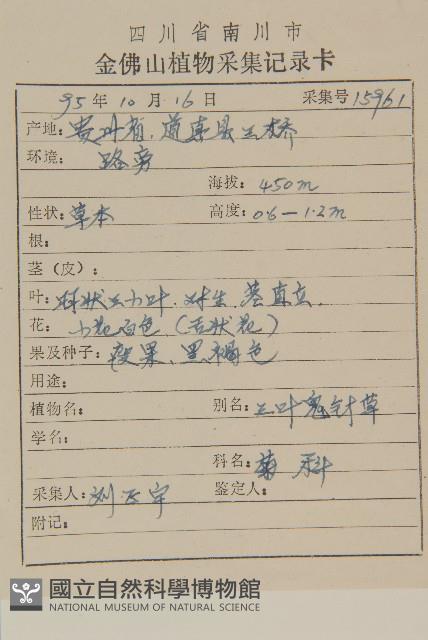 四川省南川市
金佛山植物采集记录卡
95年10月16日 采集号15961
产地：贵州省，道真县三桥
环境：路旁
海拔：450m
性状：草本 高度：0.6—1.2m
根：
茎（皮）：
叶：羽状三小叶．对生．茎直立．
花：小花白色（舌状花）
果及种子：瘦果、黑褐色
用途：
植物名： 别名：三叶鬼针草
学名：
科名：菊 科
采集人：刘正宇 鉴定人：
附记：
國立自然科學博物館
NATIONAL MUSEUM OF NATURAL SCIENCE